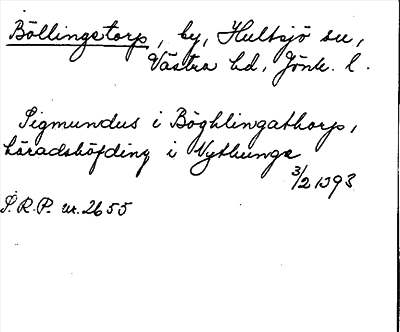 Böllingstorp, by, Hultsjö sn,
Västra hd, Jönk. l.
Sigmundus i Böghlingathorp,
häradshöfding i Nythunge
3/2 1393
S.R.P. nr. 2655